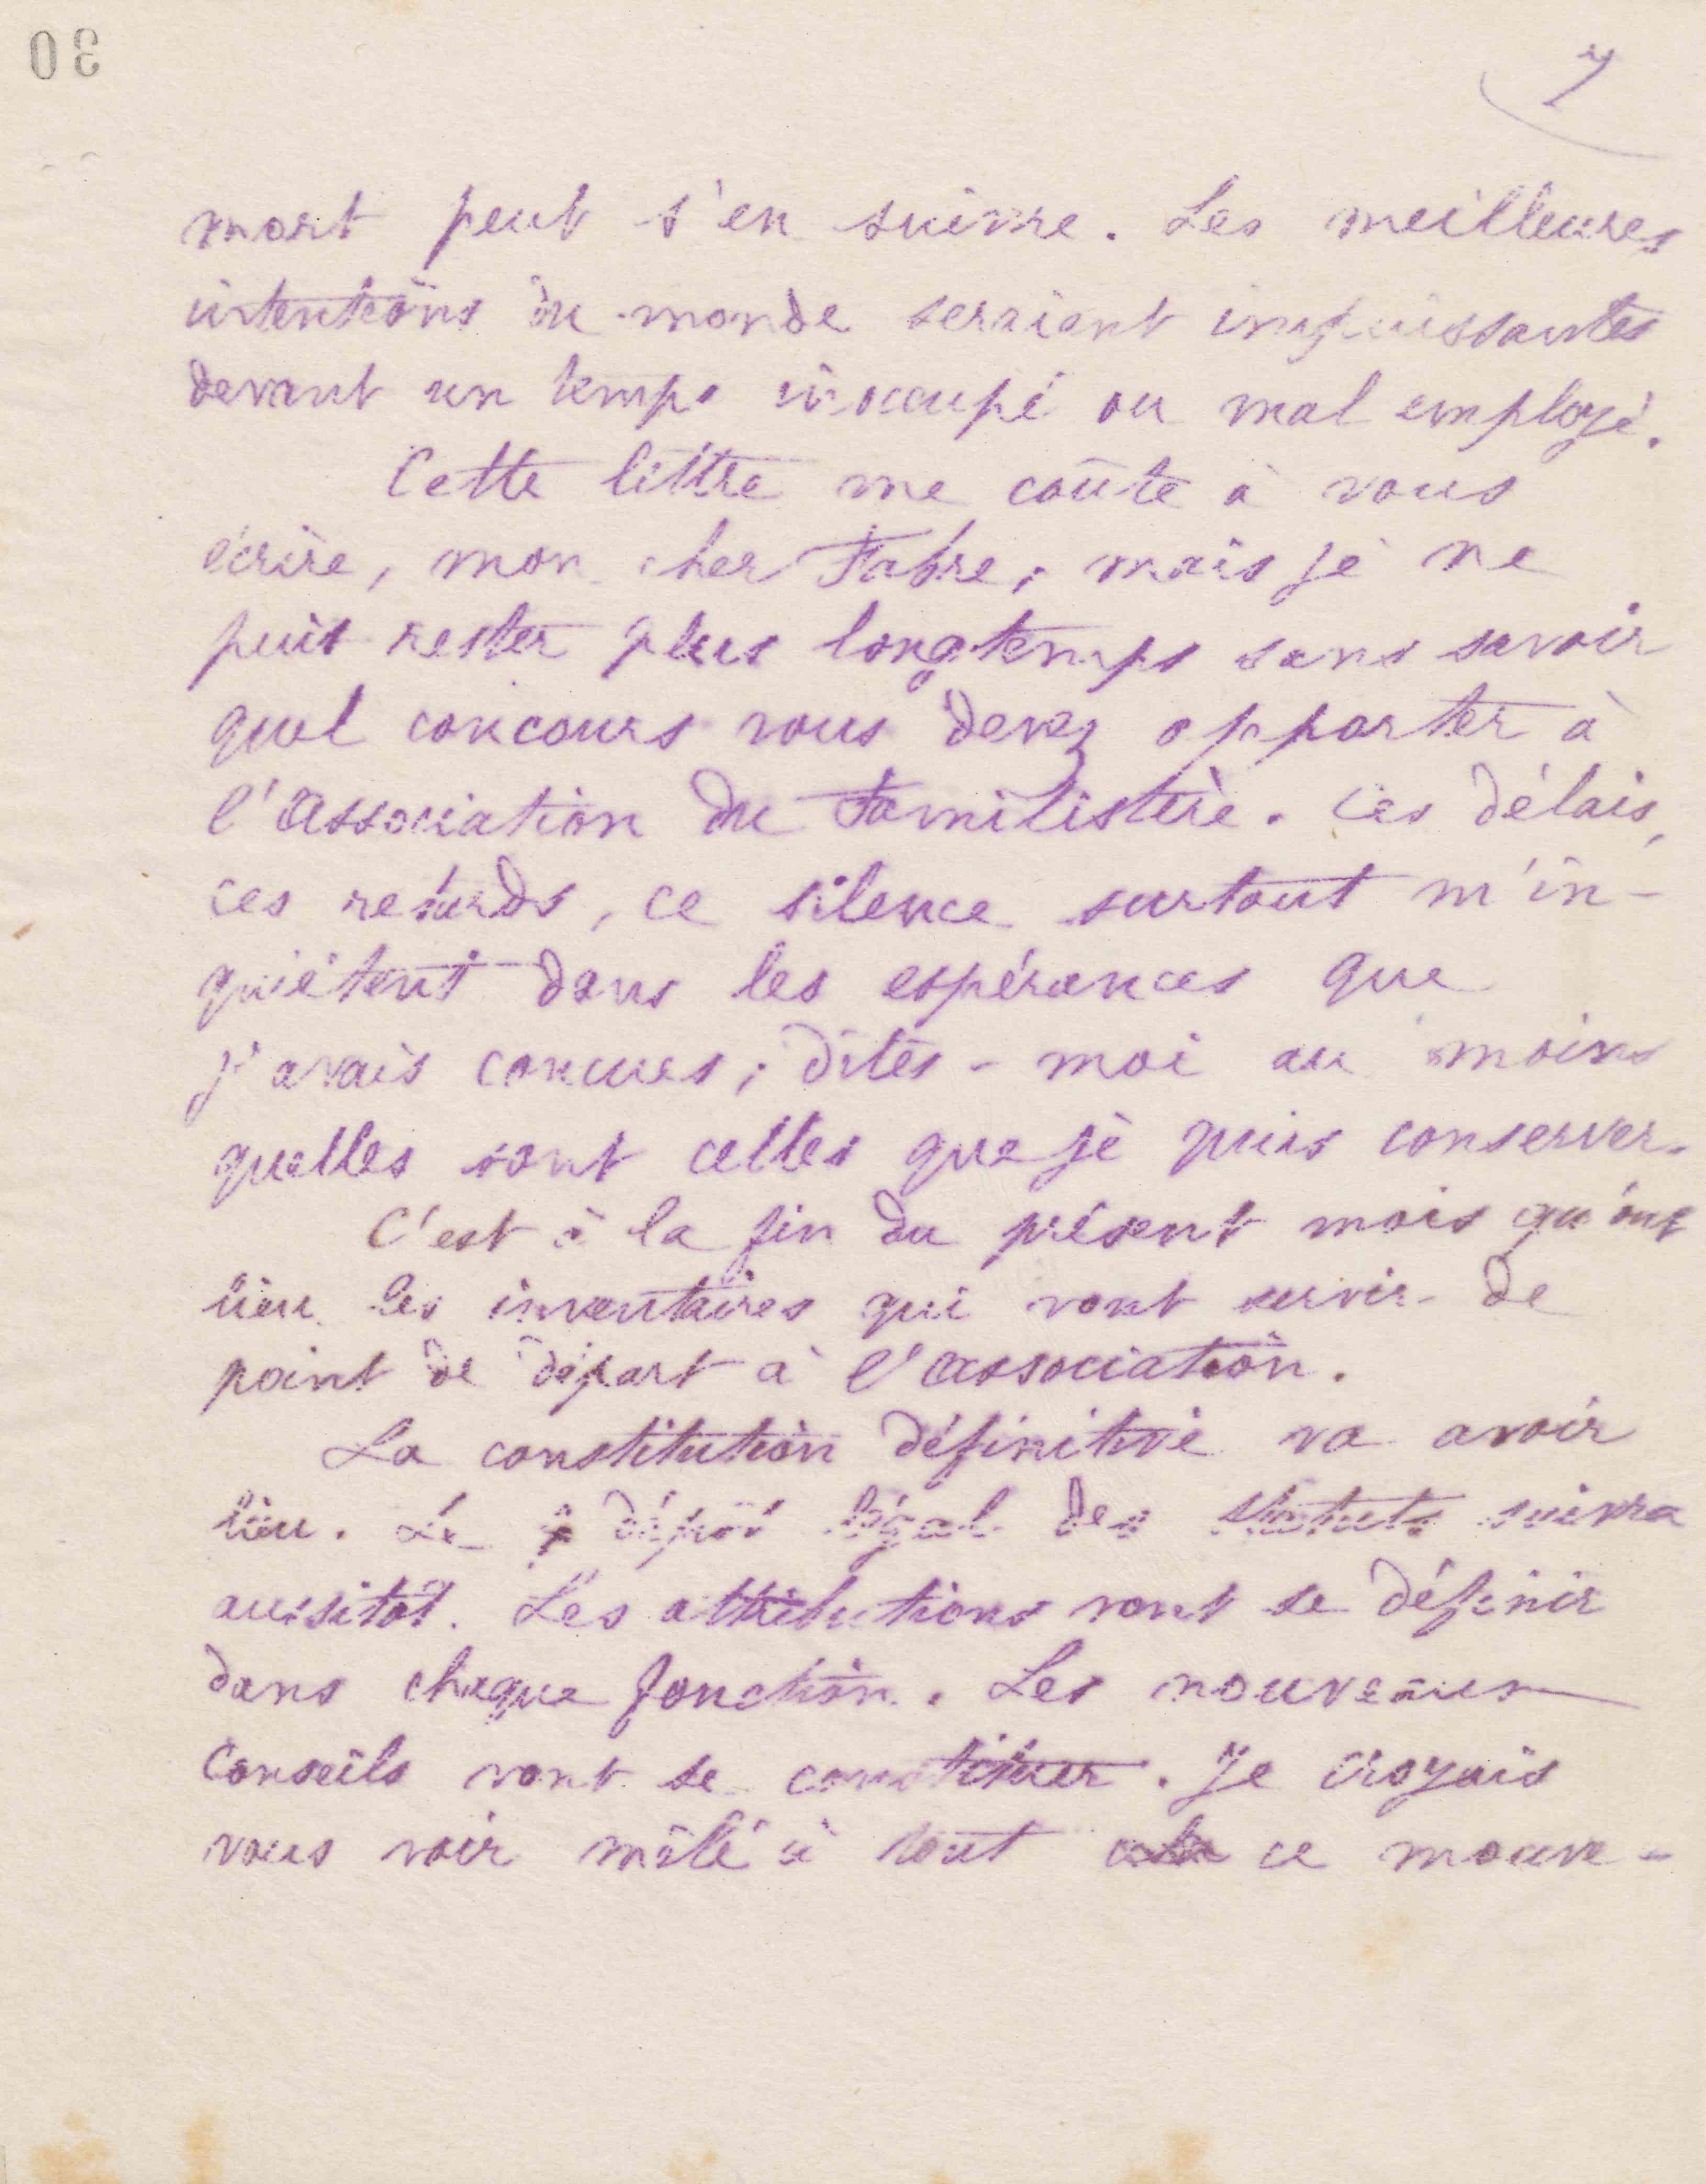 7
mort peut s'en suivre. Les meilleures
intentions du monde seraient impuissantes
devant un temps inoccupé ou mal employé.
Cette lettre me coûte à vous
écrire, mon cher Fabre, mais je ne
puis rester plus longtemps sans savoir
quel concours vous devez apporter à
l'association du Familistère. Ces délais,
ces retards, ce silence surtout m'in-
quiètent dans les espérances que
j'avais conçues; dites-moi au moins
quelles sont celles que je puis conserver.
C'est à la fin du présent mois qu'ont
lieu les inventaires qui vont servir de
point de départ à l'association.
La constitution définitive va avoir
lieu. Le dépôt légal des statuts suivra
aussitôt. Les attributions vont se définir
dans chaque fonction. Les nouveaux
Conseils vont se constituer. Je croyais
vous voir mêlé à tout ce mouve-